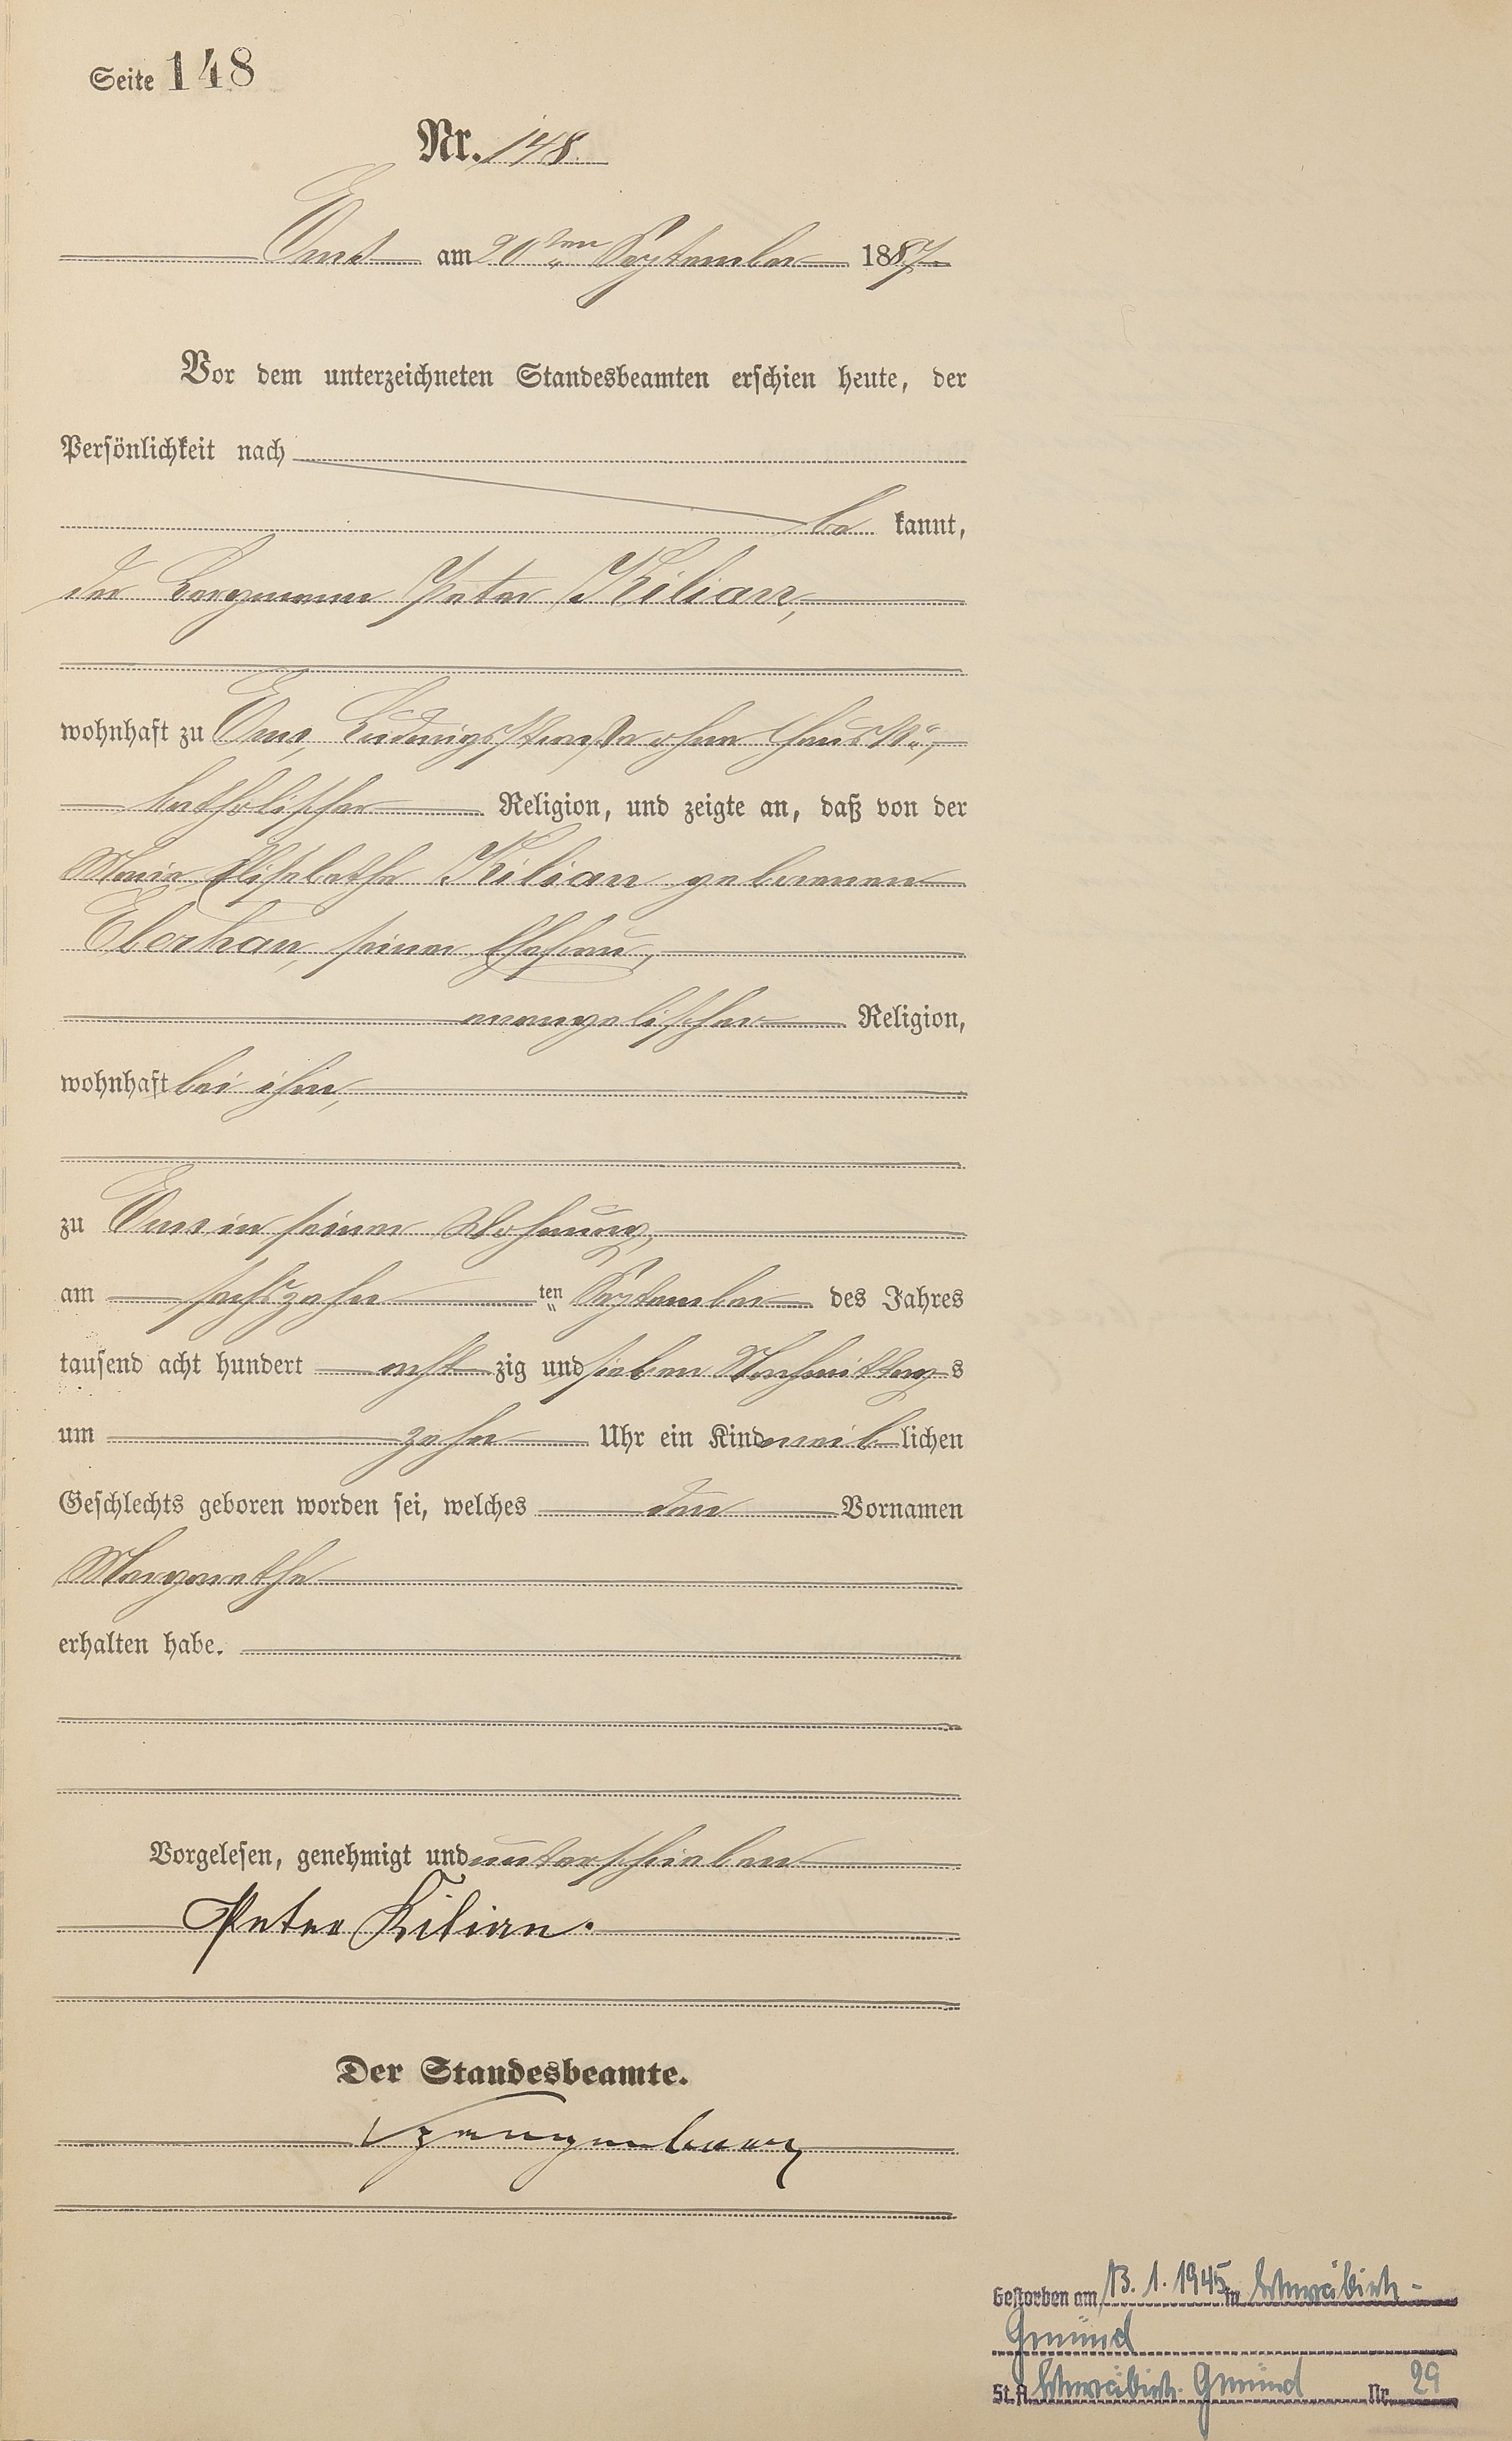 Seite 148
Nr. 148.
Ems am 20ten September 1887
Vor dem unterzeichneten Standesbeamten erschien heute, der
Persönlichkeit nach
be kannt,
der Bergmann Peter Kilian,
wohnhaft zu Ems, Ludwigsstraße ohne Haus No,
katholischer Religion, und zeigte an, daß von der
Maria Elisabethe Kilian geborenen
Elerhan, seiner Ehefrau,
evangelischer Religion,
wohnhaft bei ihm,
zu Ems in seiner Wohnung,
am sechszehn ten September des Jahres
tausend acht hundert acht zig und sieben Nachmittag s
um zehn Uhr ein Kind weib lichen
Geschlechts geboren worden sei, welches den Vornamen
Margarethe
erhalten habe.
Vorgelesen, genehmigt und unterschrieben
Peter Kilian.
Der Standesbeamte.
Gestorben am 13. 1. 1945 in Schwäbisch-
Gmünd
St. A. Schwäbisch-Gmünd Nr. 29